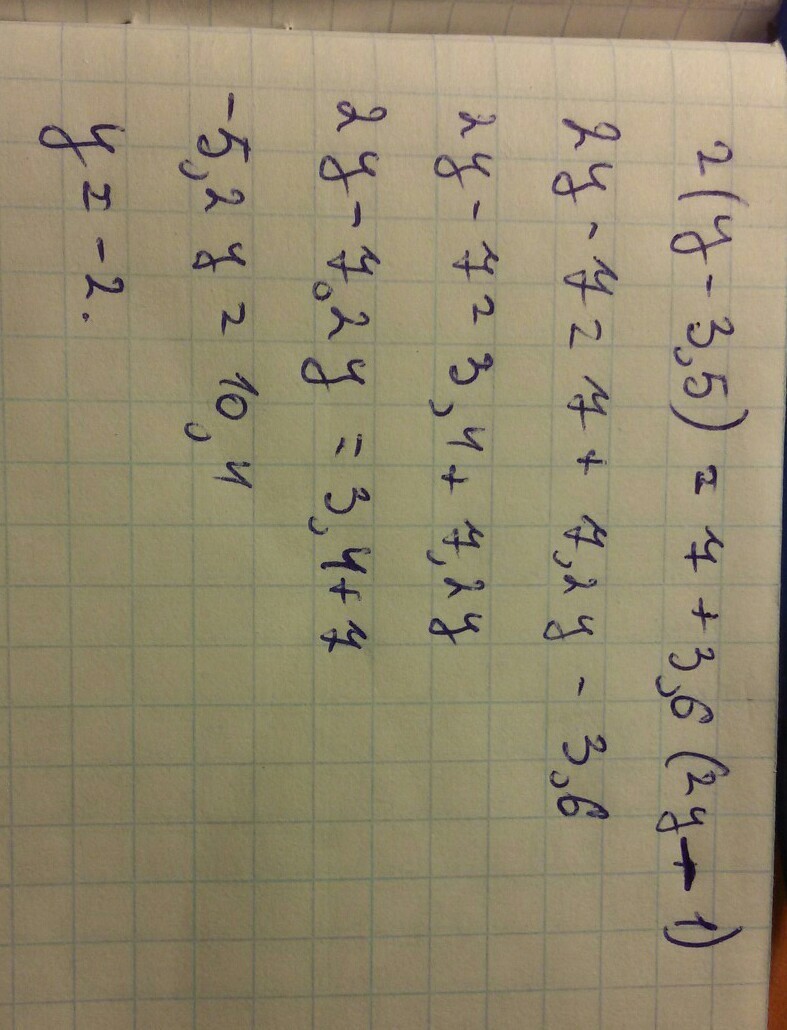 2(y - 3,5) = 7 + 3,6 (2y - 1)
2y - 7 = 7 + 7,2y - 3,6
2y - 7 = 3,4 + 7,2y
2y - 7,2y = 3,4 + 7
-5,2y = 10,4
y = -2.